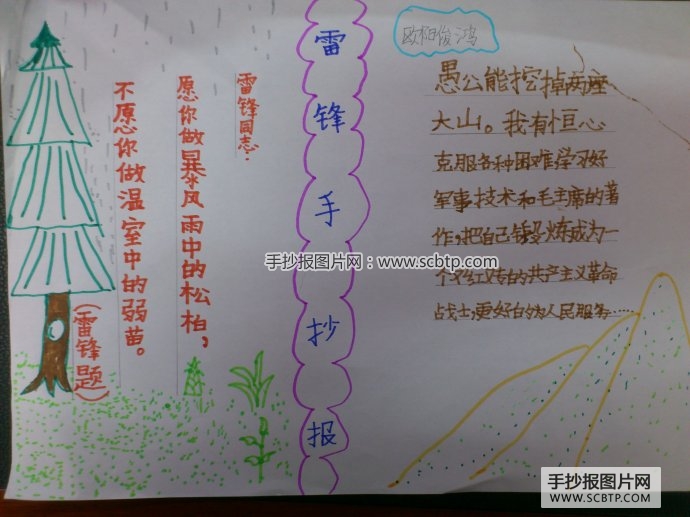 雷锋手抄报
欧阳俊鸿
雷锋同志：
愿你做暴风雨中的松柏，
不愿你做温室中的弱苗。
（雷锋题）
愚公能挖掉两座
大山。我有恒心
克服各种困难，学习好
军事技术和毛主席的著
作，把自己锻炼成为一
个又红又专的共产主义革命
战士，更好的为人民服务……
手抄报图片网：www.scbtp.com
手抄报图片网
WWW.SCBTP.COM